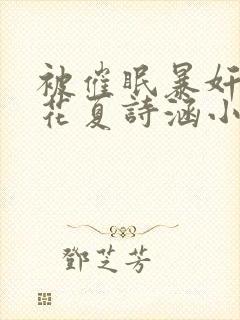 被催眠暴奸
花夏詩涵小
鄧芝芳